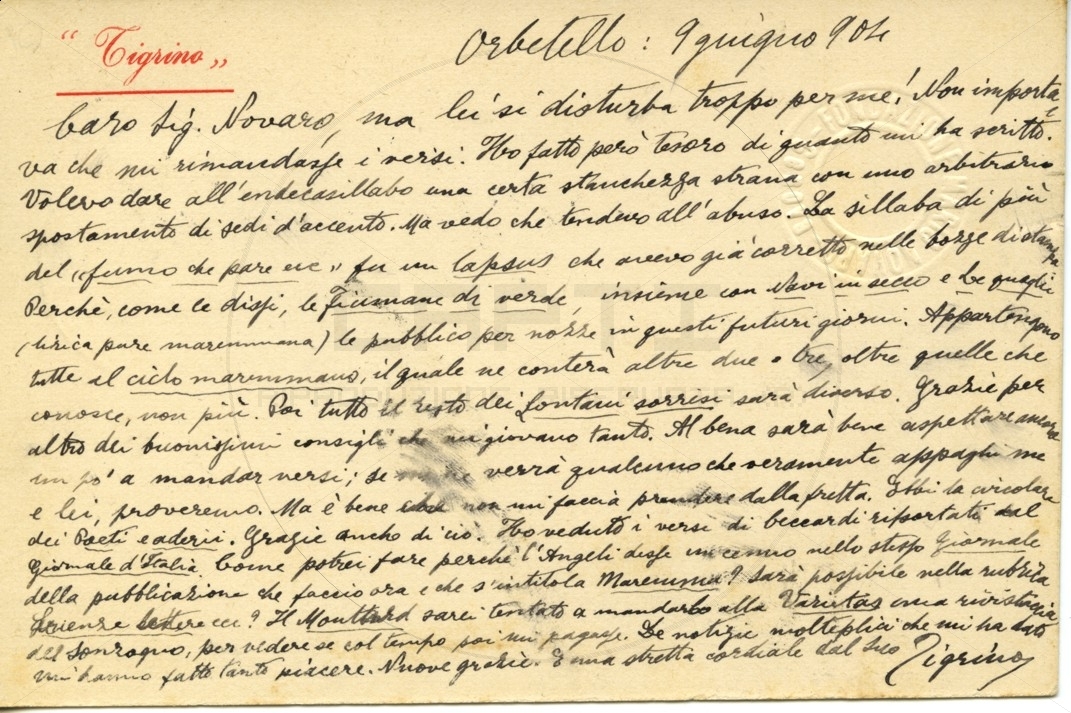 “Tigrino„
Orbetello: 9 giugno 904
Caro Sig. Novaro, ma lei si disturba troppo per me! Non importa-
va che mi rimandasse i versi. Ho fatto però tesoro di quanto mi ha scritto.
Volevo dare all'endecasillabo una certa stanchezza strana con uno arbitrario
spostamento di sedi d'accento. Ma vedo che tendevo all'abuso. La sillaba di più
del „fumo che pare ecc” fu un lapsus che avevo già corretto nelle bozze di stampa
Perchè, come le dissi, le Fiumane di verde, insieme con Navi in secco e Le quaglie
(lirica pure maremmana) le pubblico per nozze in questi futuri giorni. Appartengono
tutte al ciclo maremmano, il quale ne conterà altre due o tre, oltre quelle che
conosce, non più. Poi tutto il resto dei fontani sorrisi sarà diverso. Grazie per
altro dei buonissimi consigli che mi giovano tanto. Al bena sarà bene aspettare ancora
un po' a mandar versi; se verrà qualcuno che veramente appaghi me
e lei, proveremo. Ma è bene non mi faccia prendere dalla fretta. Ebbi la circolare
dei Poeti e aderii. Grazie anche di ciò. Ho veduto i versi di beccardi riportati dal
Giornale d'Italia. Come potrei fare perchè l'Angeli desse un cenno nello stesso Giornale
della pubblicazione che faccio ora e che s'intitola Maremma? Sarà possibile nella rubrica
ecc? Il sarei tentato a mandarlo alla Varietas una rivistina
del Sonzogno, per vedere se col tempo poi mi pagasse. Le notizie molteplici che mi ha dato
mi hanno fatto tanto piacere. Nuove grazie. E una stretta cordiale dal suo Tigrino